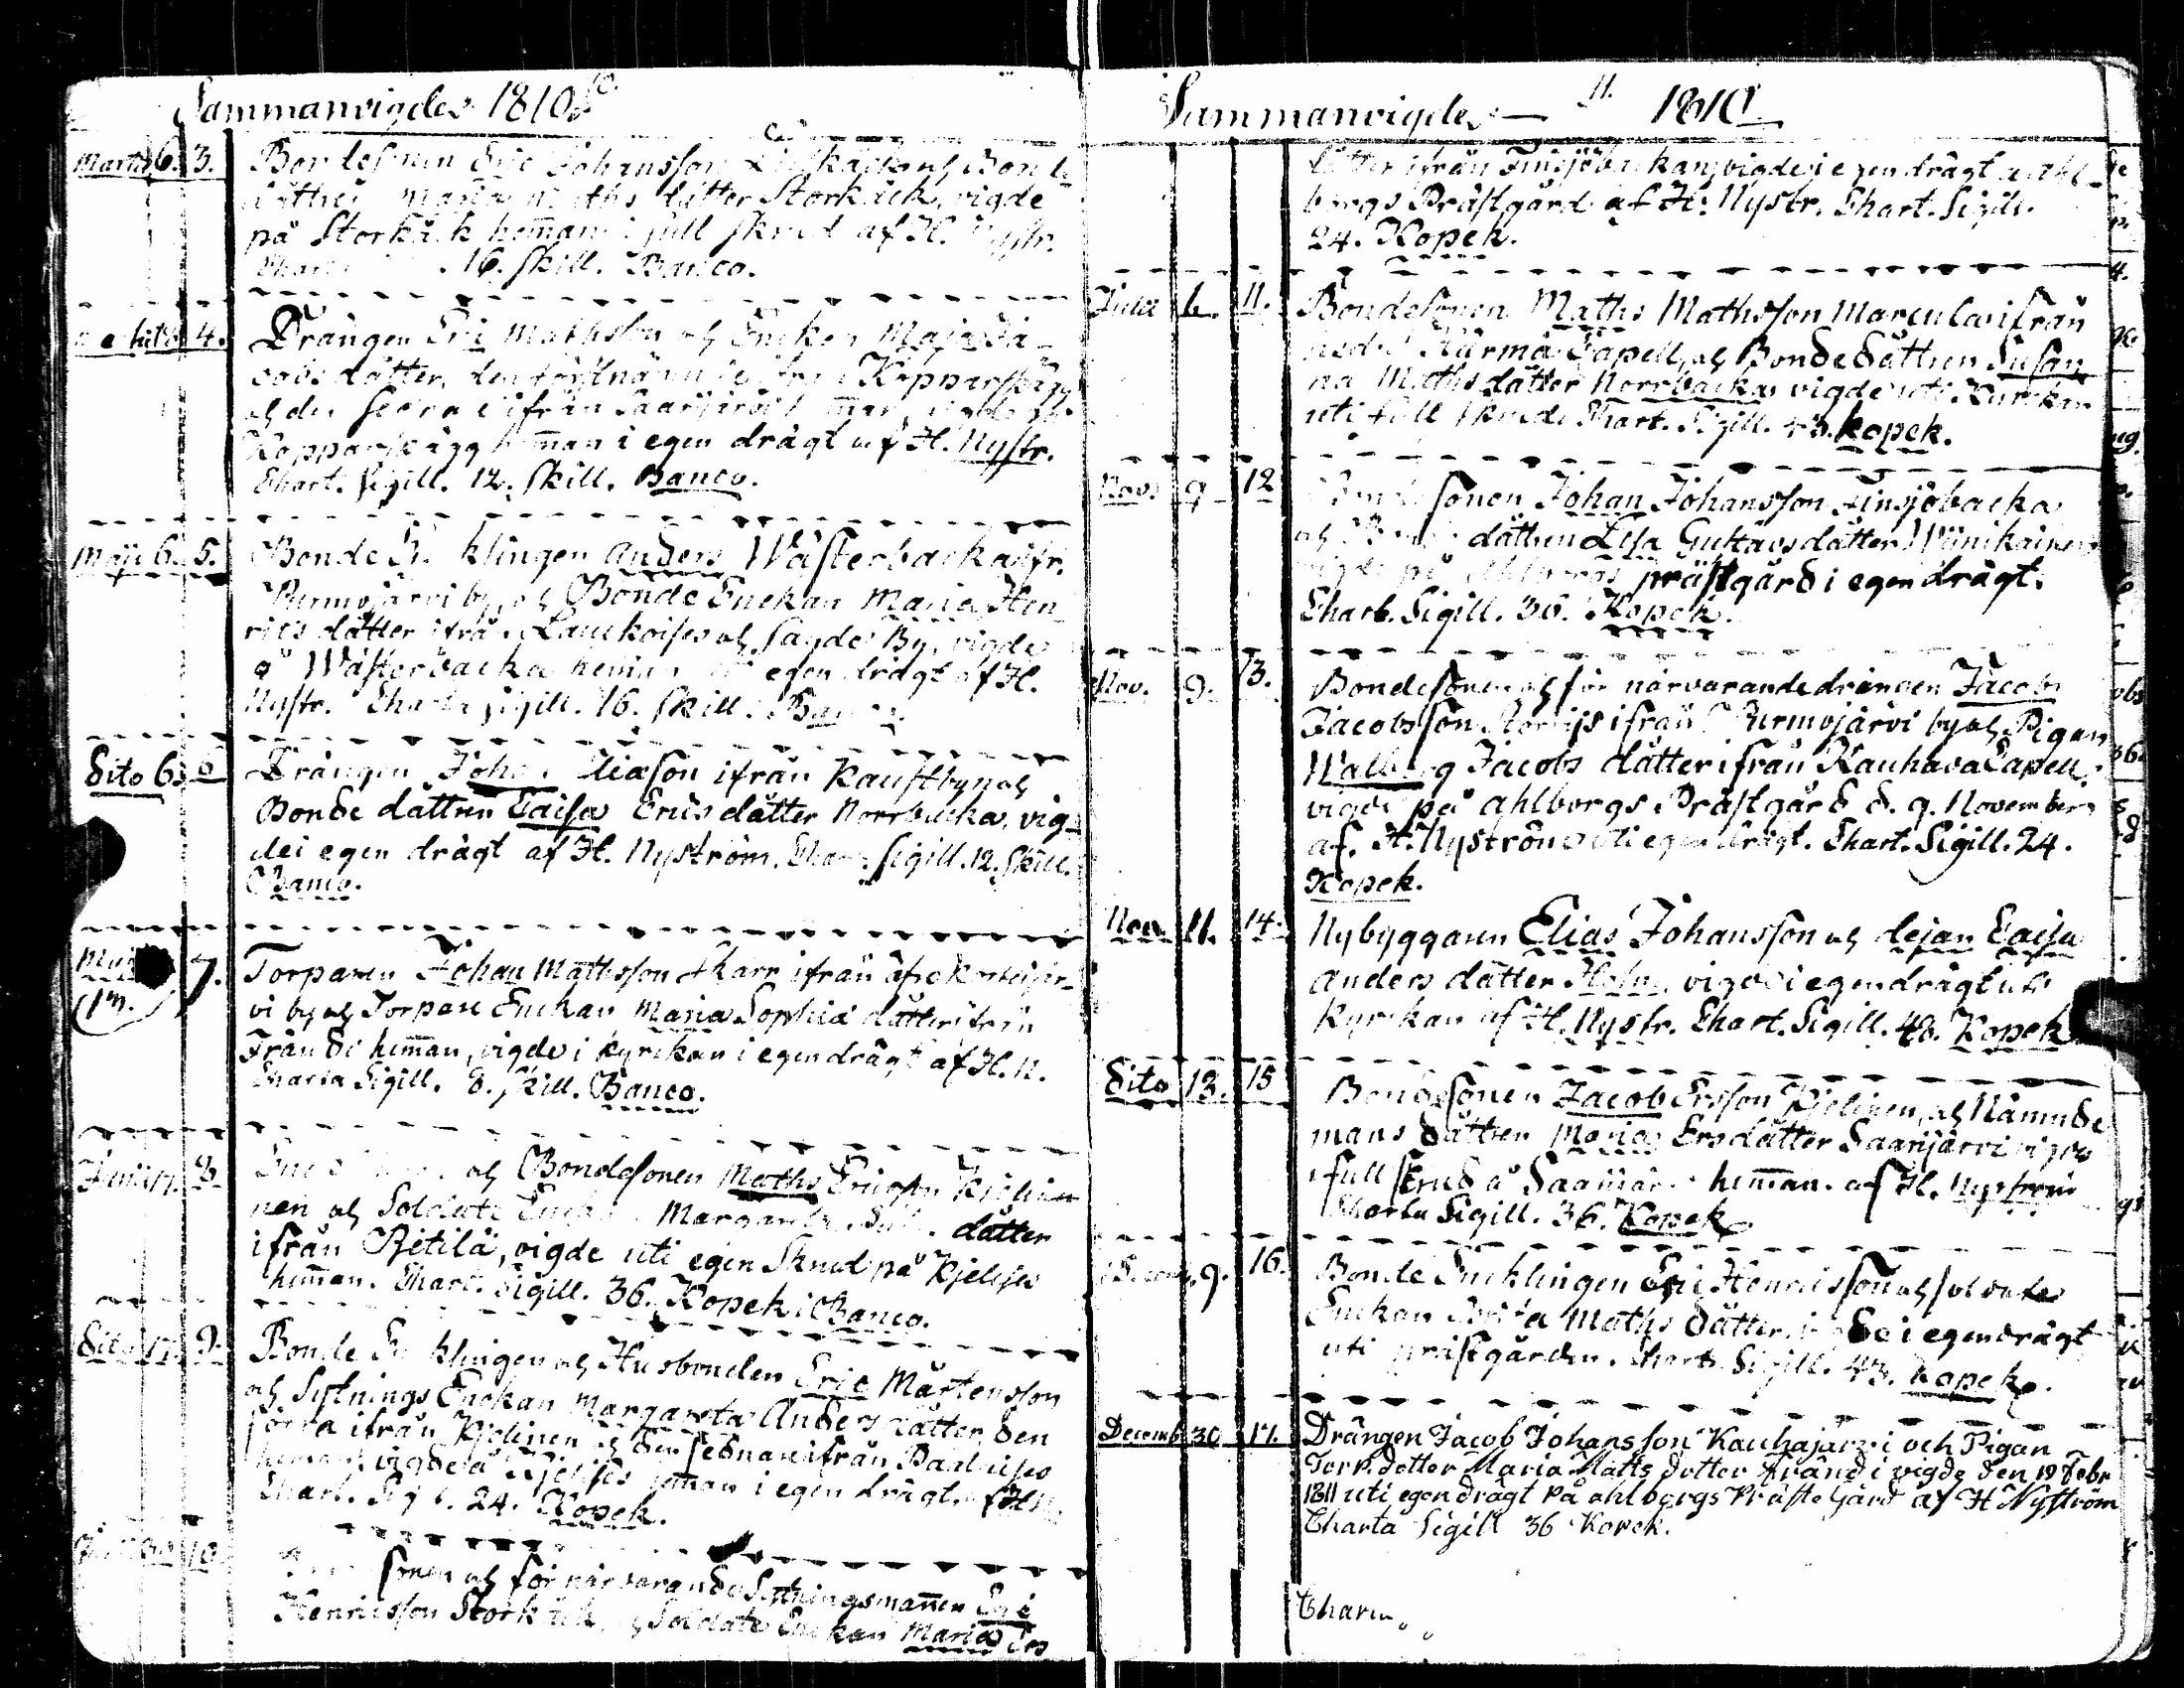 Sammanvigde 1810. 10.
Martii 6. 3. Bondesonen Eric Johansson och Bonde
dottren Maria Maths dåtter Storkåck, vigde
på Storkåck hemman i full skrud af H. Nystr.
Chart. 16. skill. Banco.
4. Drängen Eric Mathsson och Enckan Maja Ja-
cobs dåtter, den förstnämnde ifrån Kopparskägg
och den sednare ifrån Saarijärvi hemman, vigde på
Kopparskägg hemman i egen drägt af H. Nystr.
Chart. Sigill. 12. skill. Banco.
Maji 6. 5. Bonde Encklingen Anders Wästerbacka ifr.
Purmojärvi by, och Bonde Enckan Maria Hen
rics dåtter ifrån Lauckoises och sagde By, vigde
å Wästerbacka hemman i egen drägt af H.
Nystr. Charta Sigill. 16. skill. Banco.
Dito 6. 6. Drängen Johan Eliæson ifrån Kaustbyn och
Bonde dåttren Caisa Erics dåtter Norrbacka, vig-
de i egen drägt af H. Nyström. Chart. Sigill. 12. skill.
Banco.
7. Torparen Johan Mathsson Skarp ifrån
vi by och Torpare Enckan Maria Sophia dåtter ifrån
Trändi hemman, vigde i kyrckan i egen drägt af H. N.
Charta Sigill. 8. skill. Banco.
Junii 17. 8. och Bondesonen Maths Ericsson Kjelin
nen och Soldate Enckan Margareta dåtter
ifrån Pjetilä, vigde uti egen skrud på Kjelises
hemman. Chart. Sigill. 36. Kopek i Banco.
Dito 17. 9. Bonde Encklingen och Husbonden Eric Mårtensson
och Sytnings Enckan Margareta Anders dåtter, den
förra ifrån Kjelinen och den sednare ifrån Paaluises
hemman, vigde å Kjelises heman i egen drägt. af H. N.
Chart. Sigill. 24. Kopek.
10. sonen och för närvarande Sytningsmannen Eric
Henricsson Storkåck och Soldate Enckan Maria Ers
Sammanvigde — 11. 1810
dåtter ifrån Finsjöbackan, vigde i egen drägt a Ahl-
borgs Prästgård af H. Nystr. Chart. Sigill.
24. Kopek.
6. 11. Bondesonen Maths Mathsson Marcula ifrån
nedre Kürmä Capell, och Bonde dåttren Susan
na Maths dåtter Norrbacka, vigde uti Kyrckan
uti full skrud. Chart. Sigill. 43. Kopek.
Nov. 9 12 Bondesonen Johan Johansson Finsjöbacka
och Bonde dåttren Lisa Gustavs dåtter Wiinikainen
vigde på Ahlborgs prästgård i egen drägt.
Chart. Sigill. 36. Kopek.
Nov. 9. 13. Bondesonen och för närvarande drängen Jacob
Jacobsson ifrån Purmojärvi by och Pigan
Walborg Jacobs dåtter ifrån Kauhava Capell,
vigde på Ahlborgs Prästgård d. 9. November
af. H. Nyström uti egen drägt. Chart. Sigill. 24.
Kopek.
Nov. 11. 14. Nybyggaren Elias Johansson och dejan Caisa
Anders dåtter Holm, vigde i egen drägt uti
Kyrckan af H. Nystr. Chart. Sigill. 48. Kopek
Dito 13. 15 Bondesonen Jacob Ersson Kjelinen, och Nämnde
mans dåttren Maria Ersdåtter Saarijärvi vigde
i full skrud å Saarijärvi hemman. af H. Nyström
Charta Sigill. 36. Kopek
Decemb. 9. 16. Bonde Encklingen Eric Henricsson och soldate
Enckan Brita Maths dåtter, vigde i egen drägt
uti prästgården. Chart. Sigill. 43. Kopek.
Decemb 30 17. Drängen Jacob Johansson Kauhajärvi och Pigan
Torp. dotter Maria Matts dotter Trändi vigde den 19 Febr
1811 uti egen drägt på ahlborgs Präste Gård af H Nyström
Charta Sigill 36 Kopek.
Charta